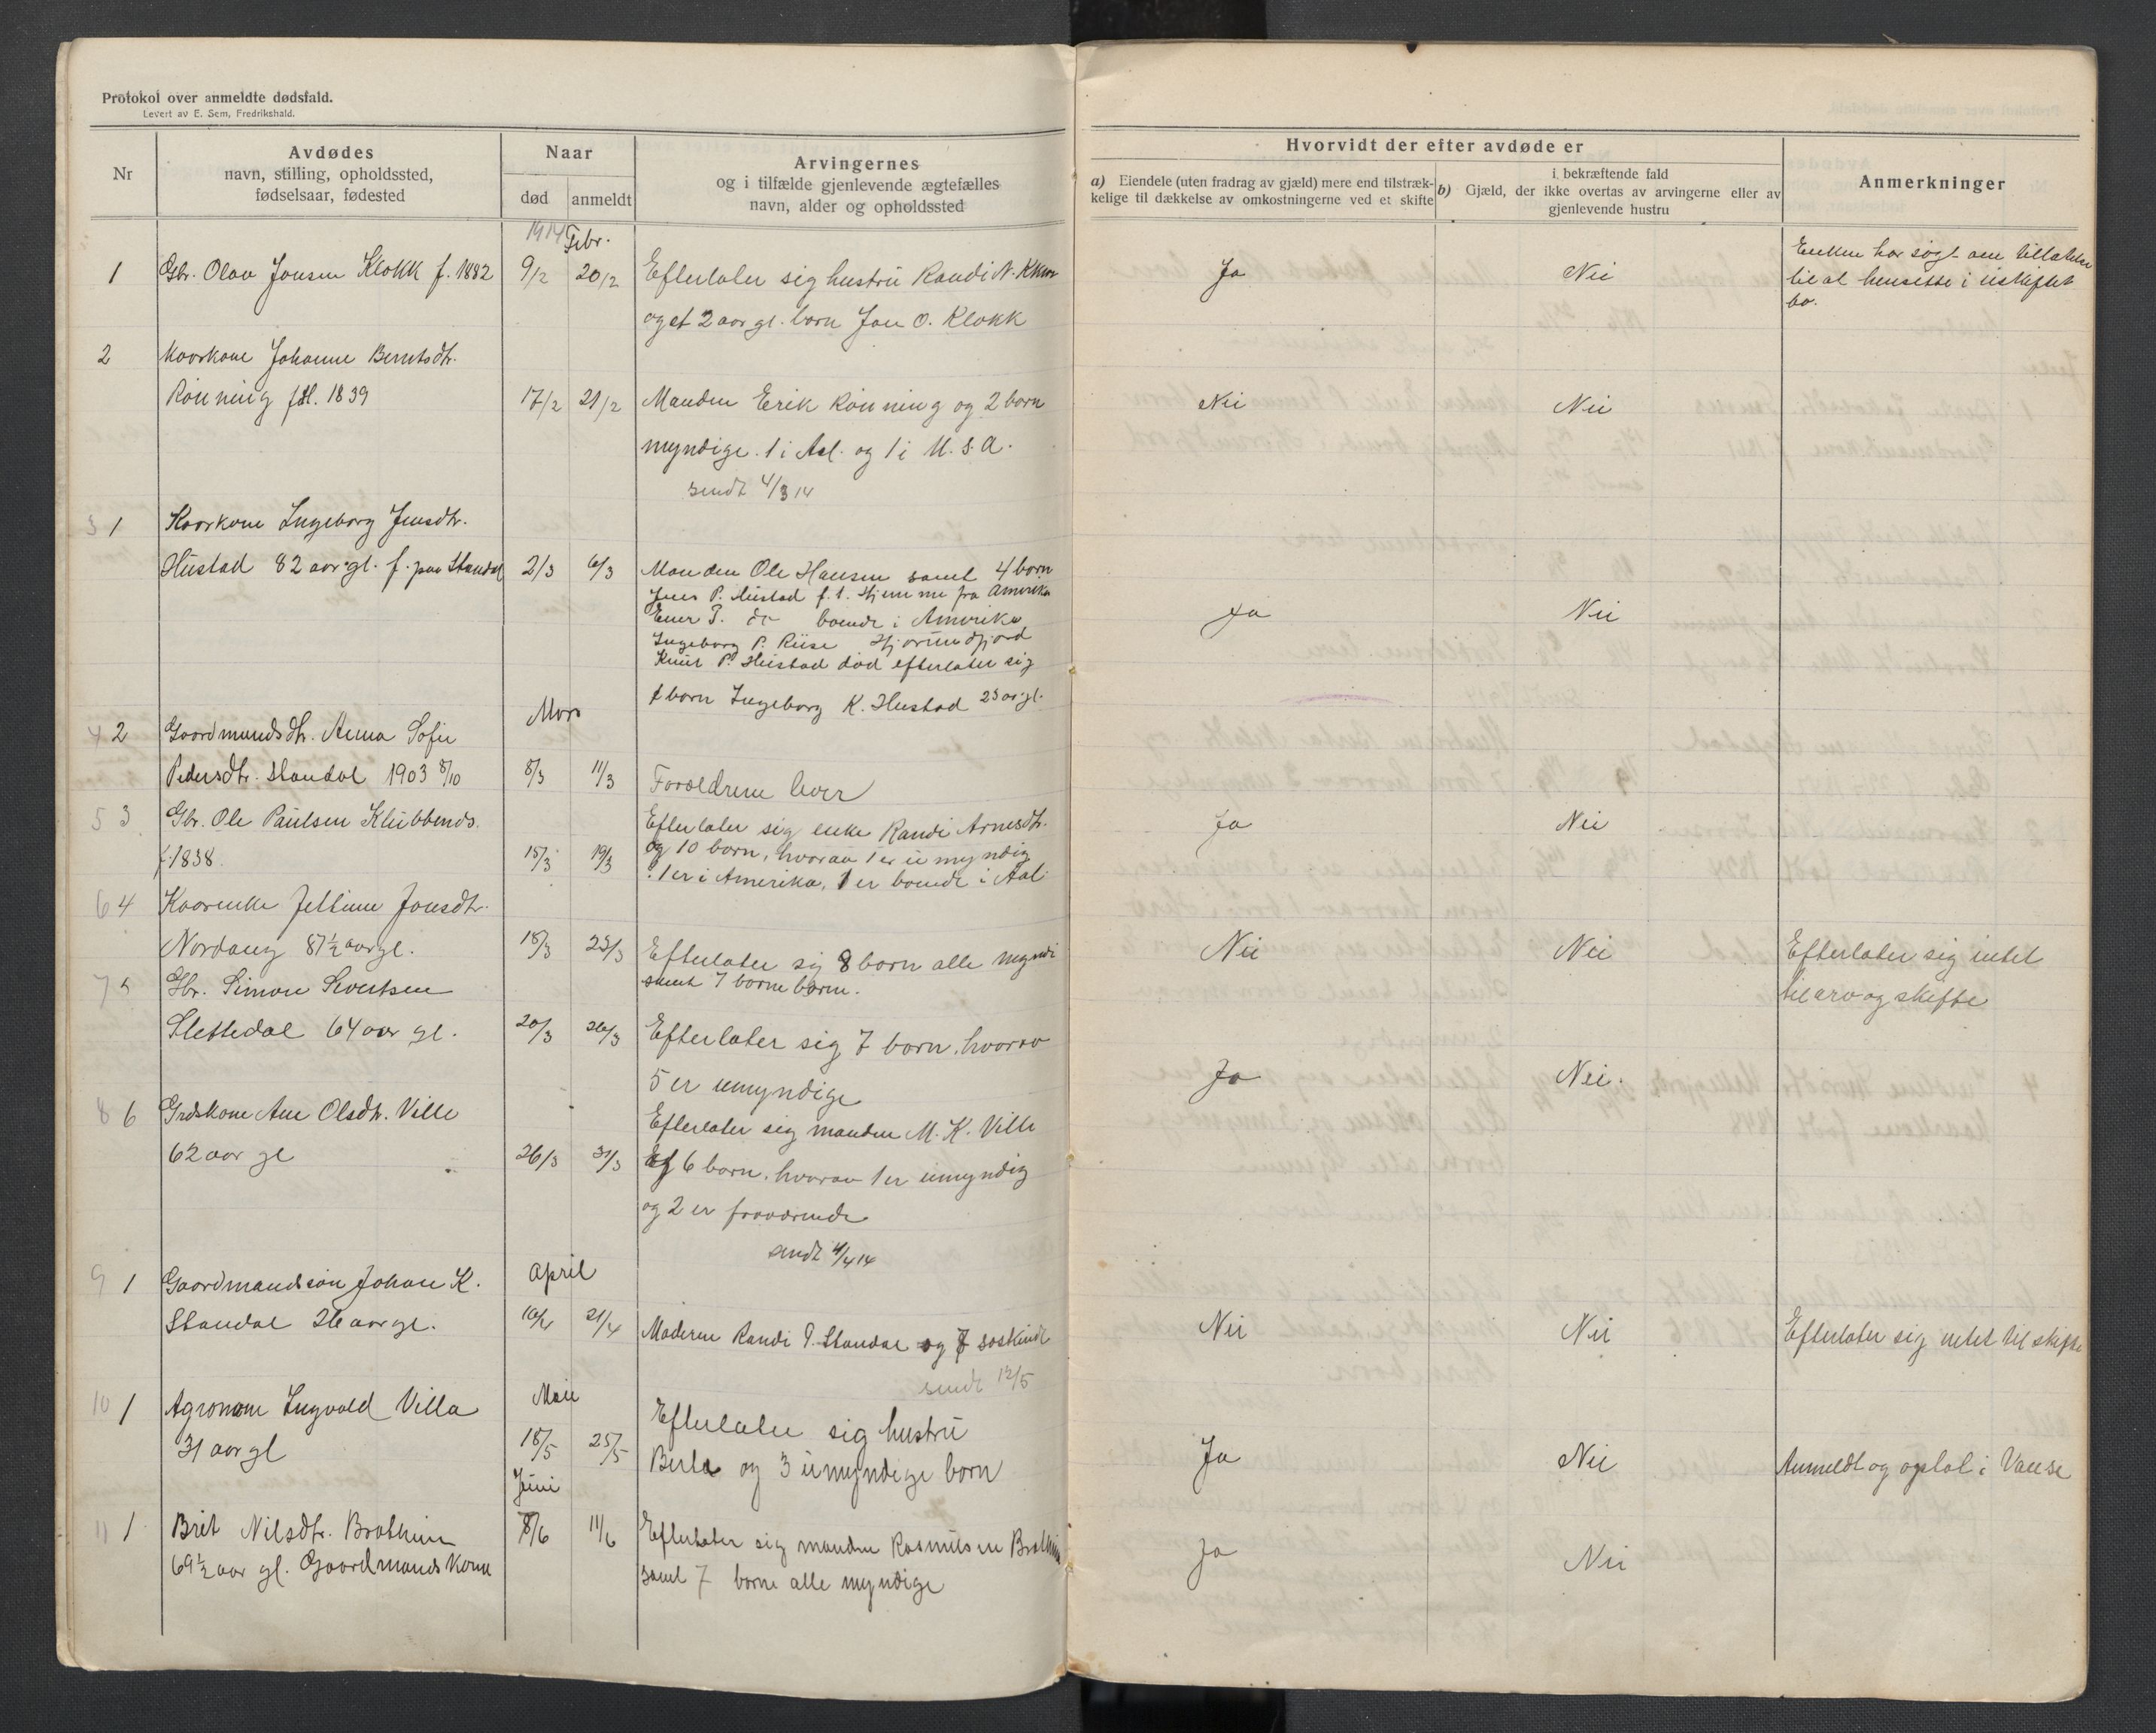 Protokol over anmeldte dødsfald.
Levert av E. Sem, Fredrikshald.
Nr
Avdødes
navn, stilling, opholdssted,
fødselsaar, fødested
Naar
død
anmeldt
Arvingernes
og i tilfælde gjenlevende ægtefælles
navn, alder og opholdssted
Hvorvidt der efter avdøde er
a) Eiendele (uten fradrag av gjæld) mere end tilstræk-
kelige til dækkelse av omkostningerne ved et skifte
i bekræftende fald
b) Gjæld, der ikke overtas av arvingerne eller av
gjenlevende hustru
Anmerkninger
1914 Febr.
1 Gbr. Olav Jonsen Klokk f. 1882 9/2 20/2 Efterlater sig hustru Randi N.
og et 2 aar gl. barn Jon O. Klokk
Ja Nei
Enken har søgt om tillatelse
til at hensitte i uskiftet
bo.
2 Kaarkone Johanne Berntsdtr.
Rönning 1839 17/2 21/2 Manden Erik Rönning og 2 born
myndige. 1 i Aal. og 1 i U.S.A.
sendt 4/3 14
Nei Nei
3 1 Kaarkone Ingeborg Jensdtr.
Hustad 82 aar gl. f. paa Standal 2/3 6/3 Manden Ole Hansen samt 4 born
Jens P. Hustad f. t. hjemme fra Amerika
P. do boende i Amerika
Ingeborg P. Riise Hjörundfjord
Knut P. Hustad död efterlater sig
1 born Ingeborg K. Hustad 23 aar gl.
Ja Nei
Mars
4 2 Gaardmandsdtr. Anna Sofie
Pedersdtr. Standal 1903 8/10 8/3 11/3 Foroldrene lever
5 3 Gbr. Ole Paulsen Klubbenes.
f. 1838. 15/3 19/3 Efterlater sig enke Randi Arnesdtr.
og 10 born, hvorav 1 er umyndig
1 er i Amerika, 1 er boende i Aal.
Ja Nei
6 4 Kaarenke Jettine Jonsdtr.
Nordang 87½ aar gl. 18/3 25/3 Efterlater sig 8 born alle myndi
samt 7 borne born.
Nei Nei
Efterlater sig intet
til arv og skifte
7 5 Gbr. Simon Sivertsen
Slettedal 64 aar gl. 20/3 26/3 Efterlater sig 7 born, hvorav
5 er umyndige
Ja Nei.
8 6 Grdskone Ane Olsdtr. Ville
62 aar gl 26/3 31/3 Efterlater sig manden M. K. Ville
og 6 born, hvorav 1 er umyndig
og 2 er fraværende
sendt 4/4 14
April
9 1 Gaardmandsön Johan K.
Standal 26 aar gl. 10/4 21/4 Moderen Randi P. Standal og 7 söskinde
sendt 12/5
Nei Nei
Efterlater sig intet til skifte
Mai
10 1 Agronom Ingvald Villa
31 aar gl 18/5 25/5 Efterlater sig hustru
Berta og 3 umyndige born
Ja Nei
Anmeldt og optat i Vanse
Juni
11 1 Brit Nilsdtr. Bratheim
69½ aar gl. Gaardmands Kone 8/6 11/6 Efterlater sig manden Rasmus Bratheim
samt 7 borne alle myndige
Ja Nei